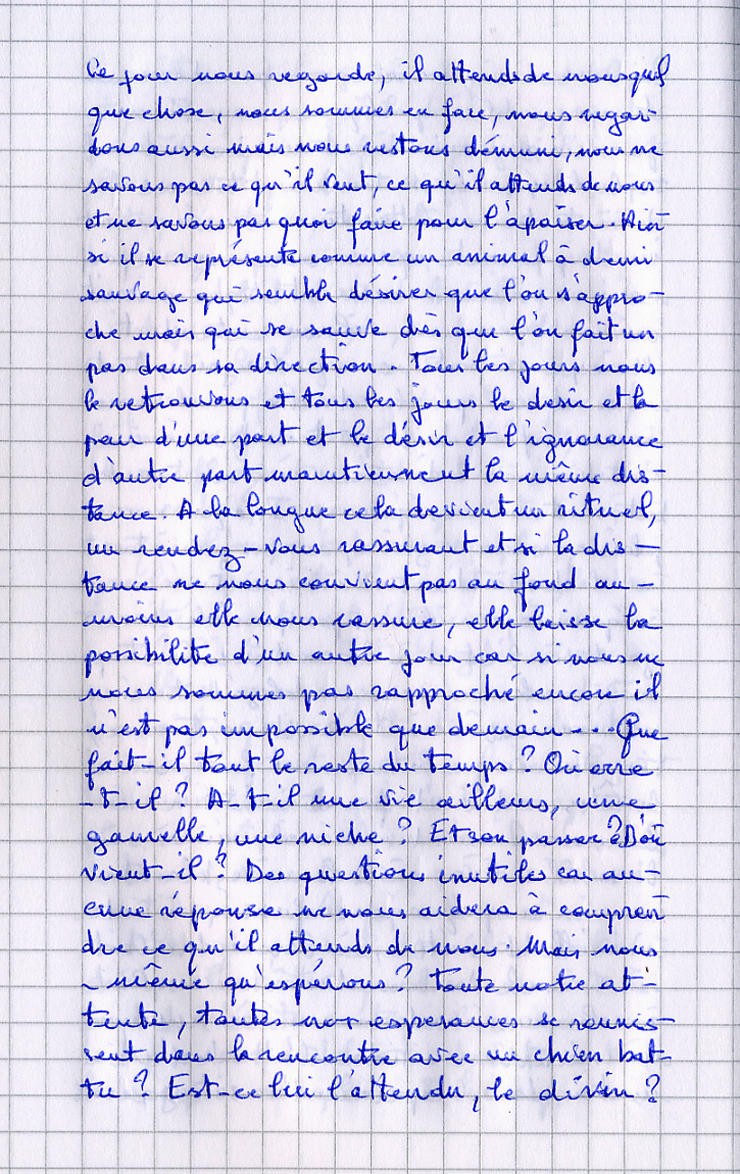 Ce jour nous regarde, il attends de nous quel
que chose, nous sommes en face, nous regar-
dons aussi mais nous restons démuni, nous ne
savons pas ce qu'il veut, ce qu'il attends de nous
et ne savons pas quoi faire pour l'apaiser. Ain-
si il se représente comme un animal à demi
sauvage qui semble désirer que l'on s'appro-
che mais qui se sauve dès que l'on fait un
pas dans sa direction. Tous les jours nous
le retrouvons et tous les jours le desir et la
peur d'une part et le désir et l'ignorance
d'autre part maintiennent la même dis-
tance. A la longue cela devient un rituel,
un rendez-vous rassurant et si la dis-
tance ne nous convient pas au fond au-
moins elle nous rassure, elle laisse la
possibilité d'un autre jour car si nous ne
nous sommes pas rapproché encore il
n'est pas impossible que demain... Que
fait-il tout le reste du temps? Où erre
-t-il? A-t-il une vie ailleurs, une
gamelle, une niche? Et son passer? D'où
vient-il? Des questions inutiles car au-
cune réponse ne nous aidera à compren-
dre ce qu'il attends de nous. Mais nous
-même qu'espérons? Toute notre at-
tente, toutes nos esperances se réunis-
sent dans la rencontre avec un chien bat-
tu? Est-ce lui l'attendu, le divin?